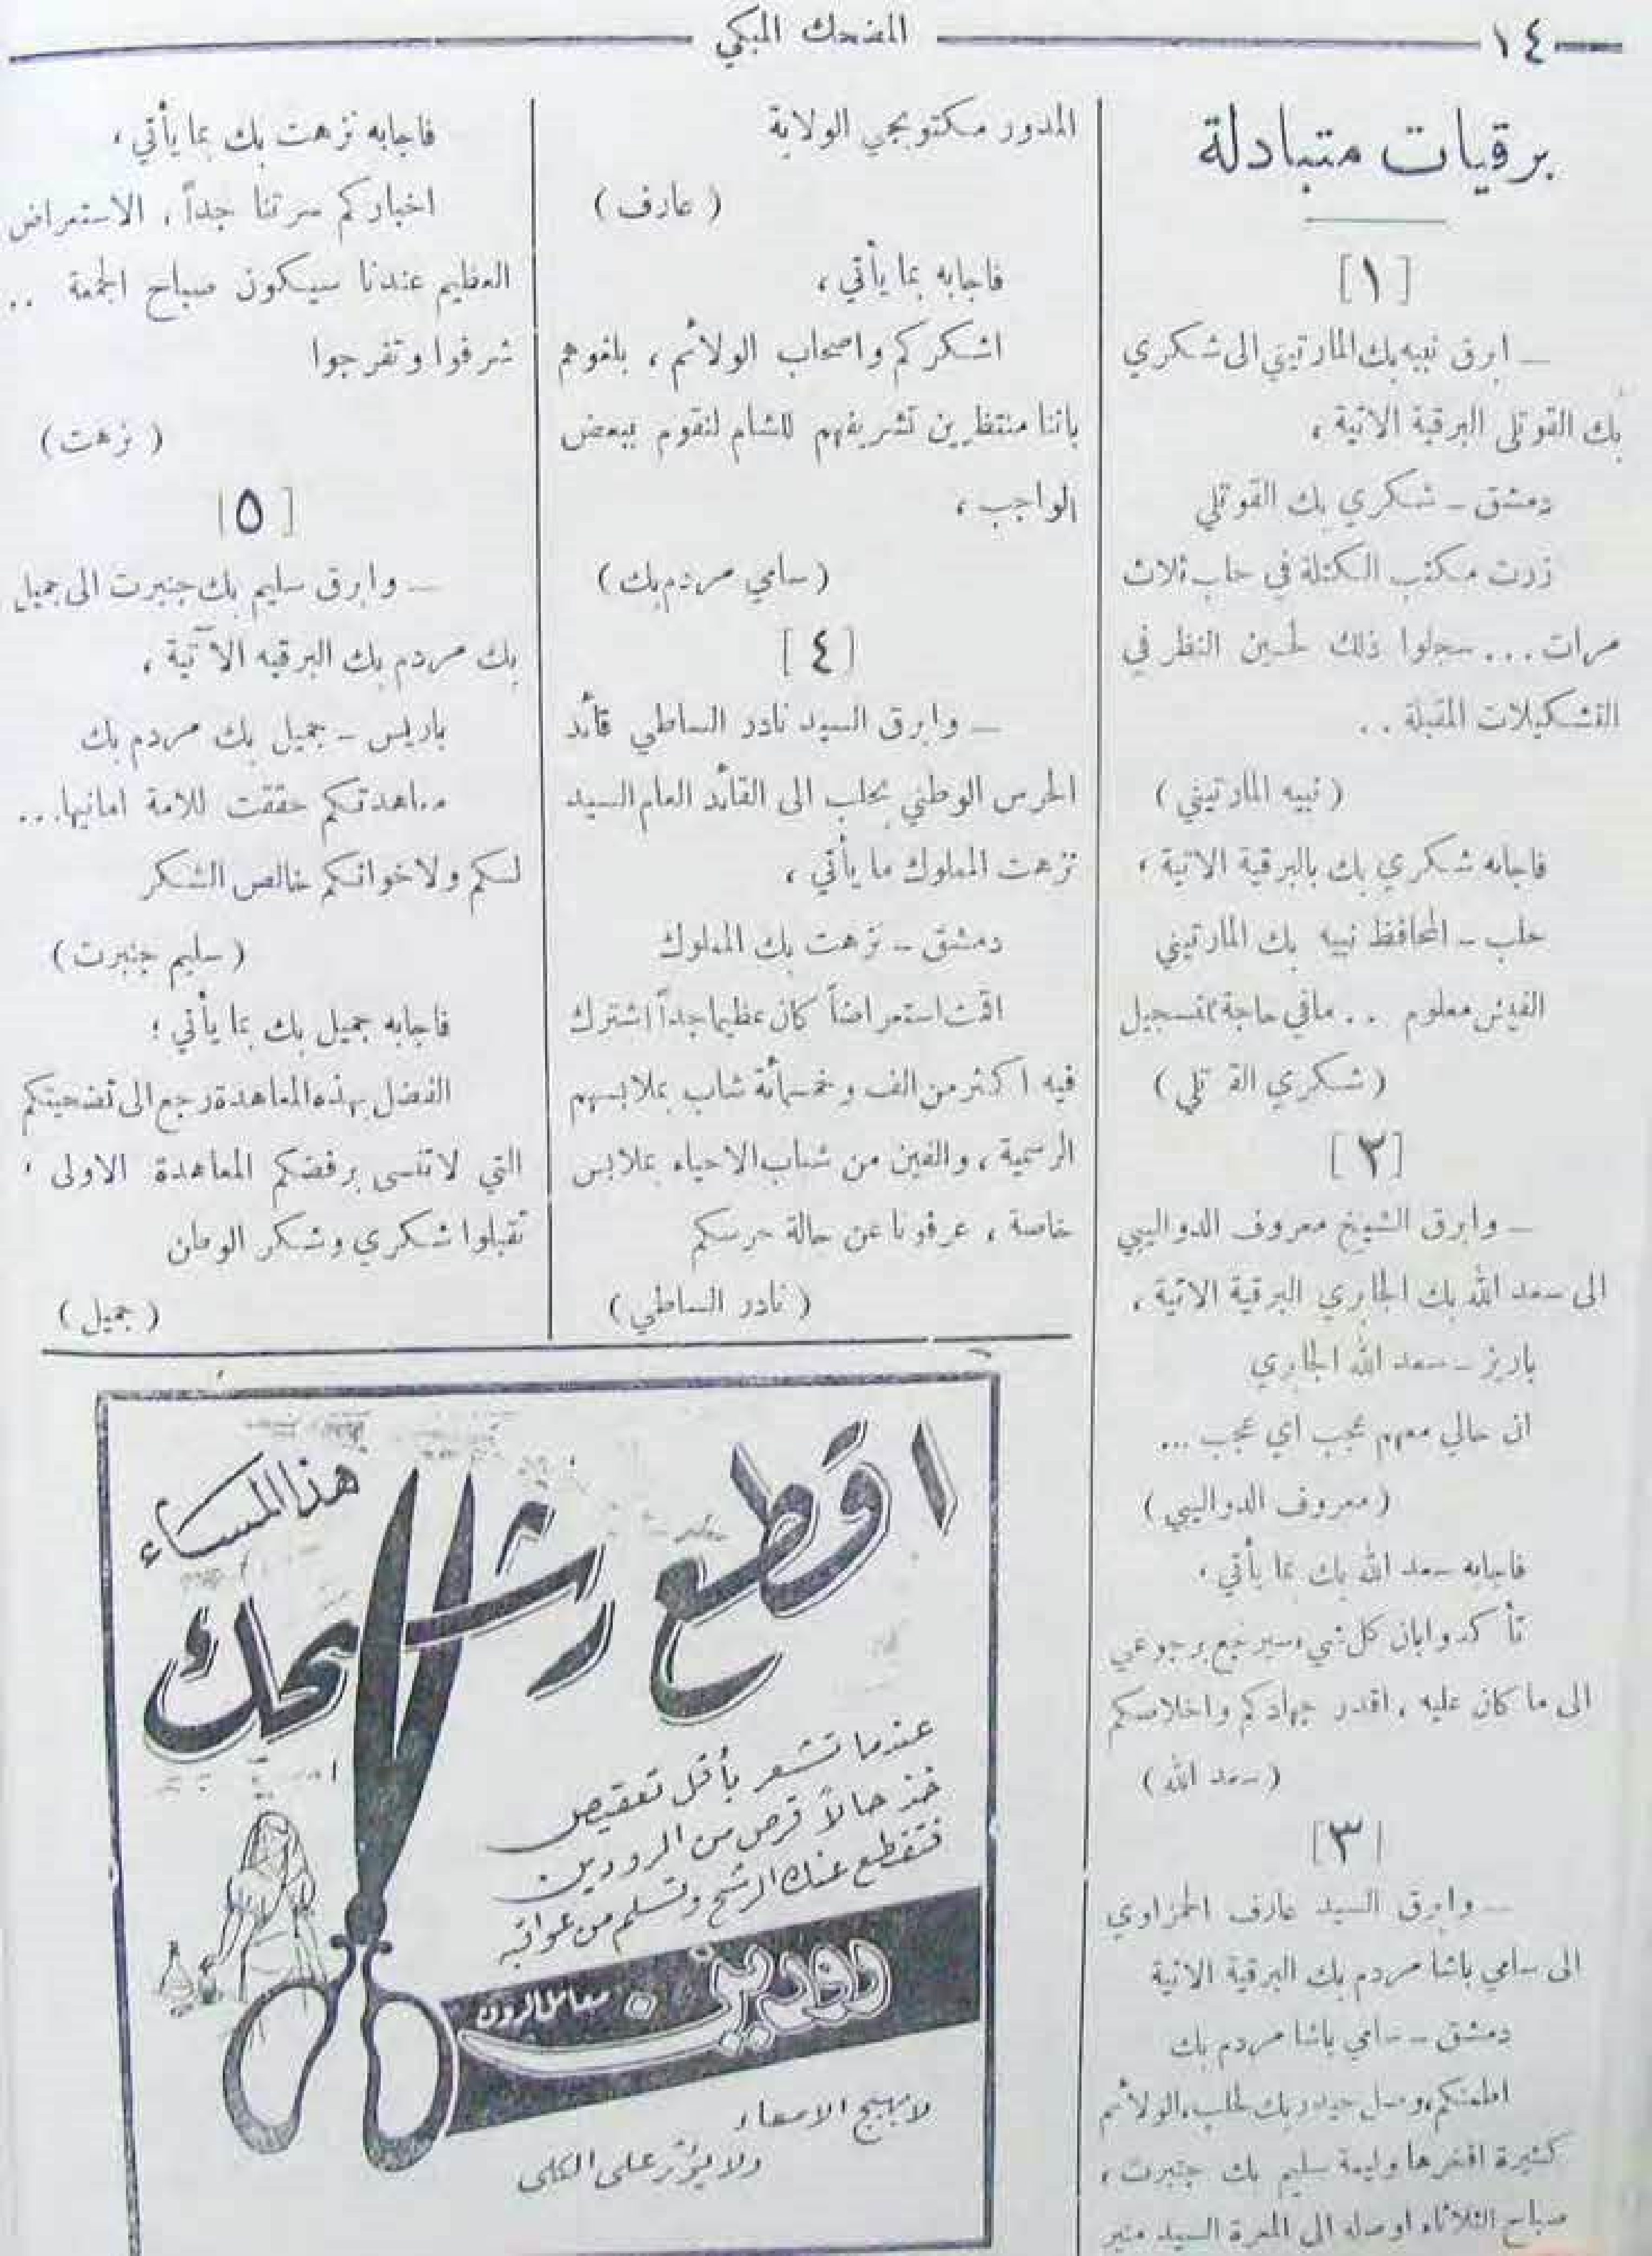 ١٤
المضحك المبكي
برقيات متبادلة
[١]
ـ ابرق نبيه بك المارتيني الى شكري
بك القوتلي البرقية الاتية ،
دمشق ـ شكري بك القوتلي
زرت مكتب الكتلة في حلب ثلاث
مرات ... سجلوا ذلك لحين النظر في
التشكيلات المقبلة ..
( نبيه المارتيني )
فاجابه شكري بك بالبرقية الاتية ،
حلب ـ المحافظ نبيه بك المارتيني
الفيش معلوم .. مافي حاجة لتسجيل
( شكري القـ تلي )
[٢]
ـ وابرق الشيخ معروف الدواليبي
الى سعد الله بك الجابري البرقية الاتية ،
باريز ـ سعد الله الجابري
ان حالي معهم عجب اي عجب ...
( معروف الدواليبي )
فاجابه سعد الله بك بما يأتي ،
تأكدوا بان كل شيء سيرجع برجوعي
الى ما كان عليه ، اقدر جهادكم واخلاصكم
( سعد الله )
[٣]
ـ وابرق السيد عارف الحمزاوي
الى سامي باشا مردم بك البرقية الاتية
دمشق ـ سامي باشا مردم بك
اطمنكم، وصل حيدر بك لحلب، الولائم
كثيرة افخرها وليمة سليم بك جنبرت ،
صباح الثلاثاء اوصله الى المعرة السيد منير
المدور مكتوبجي الولاية
( عارف )
فاجابه بما يأتي ،
اشكركم واصحاب الولائم ، بلغوهم
باننا منتظرين تشريفهم للشام لنقوم ببعض
الواجب ،
( سامي مردم بك )
[٤]
ـ وابرق السيد نادر الساطي قائد
الحرس الوطني بحلب الى القائد العام السيد
نزهت المملوك ما يأتي ،
دمشق ـ نزهت بك المملوك
اقمت استعراضاً كان عظيما جداً اشترك
فيه اكثر من الف وخمسمائة شاب بملابسهم
الرسمية ، والفين من شباب الاحياء بملابس
خاصة ، عرفونا عن حالة حرسكم
( نادر الساطي )
فاجابه نزهت بك بما يأتي ،
اخباركم سرتنا جداً ، الاستعراض
العظيم عندنا سيكون صباح الجمعة ..
شرفوا وتفرجوا
( نزهت )
[٥]
ـ وابرق سليم بك جنبرت الى جميل
بك مردم بك البرقيه الآتية ،
باريس ـ جميل بك مردم بك
معاهدتكم حققت للامة امانيها ...
لكم ولاخوانكم خالص الشكر
( سليم جنبرت )
فاجابه جميل بك بما يأتي ؛
الفضل بهذه المعاهدة رجع الى تضحيتكم
التي لاتنسى برفضكم المعاهدة الاولى ،
تقبلوا شكري وشكر الوطن
( جميل )
اقطع رشحك
هذا المساء
عندما تشعر بأقل تعقيص
خذ حالاً قرص من الرودين
فتقطع عنك الرشح وتسلم من عواقبه
رودين
معامل الرون
لا يهيج الامعاء
ولا يؤثر على الكلى